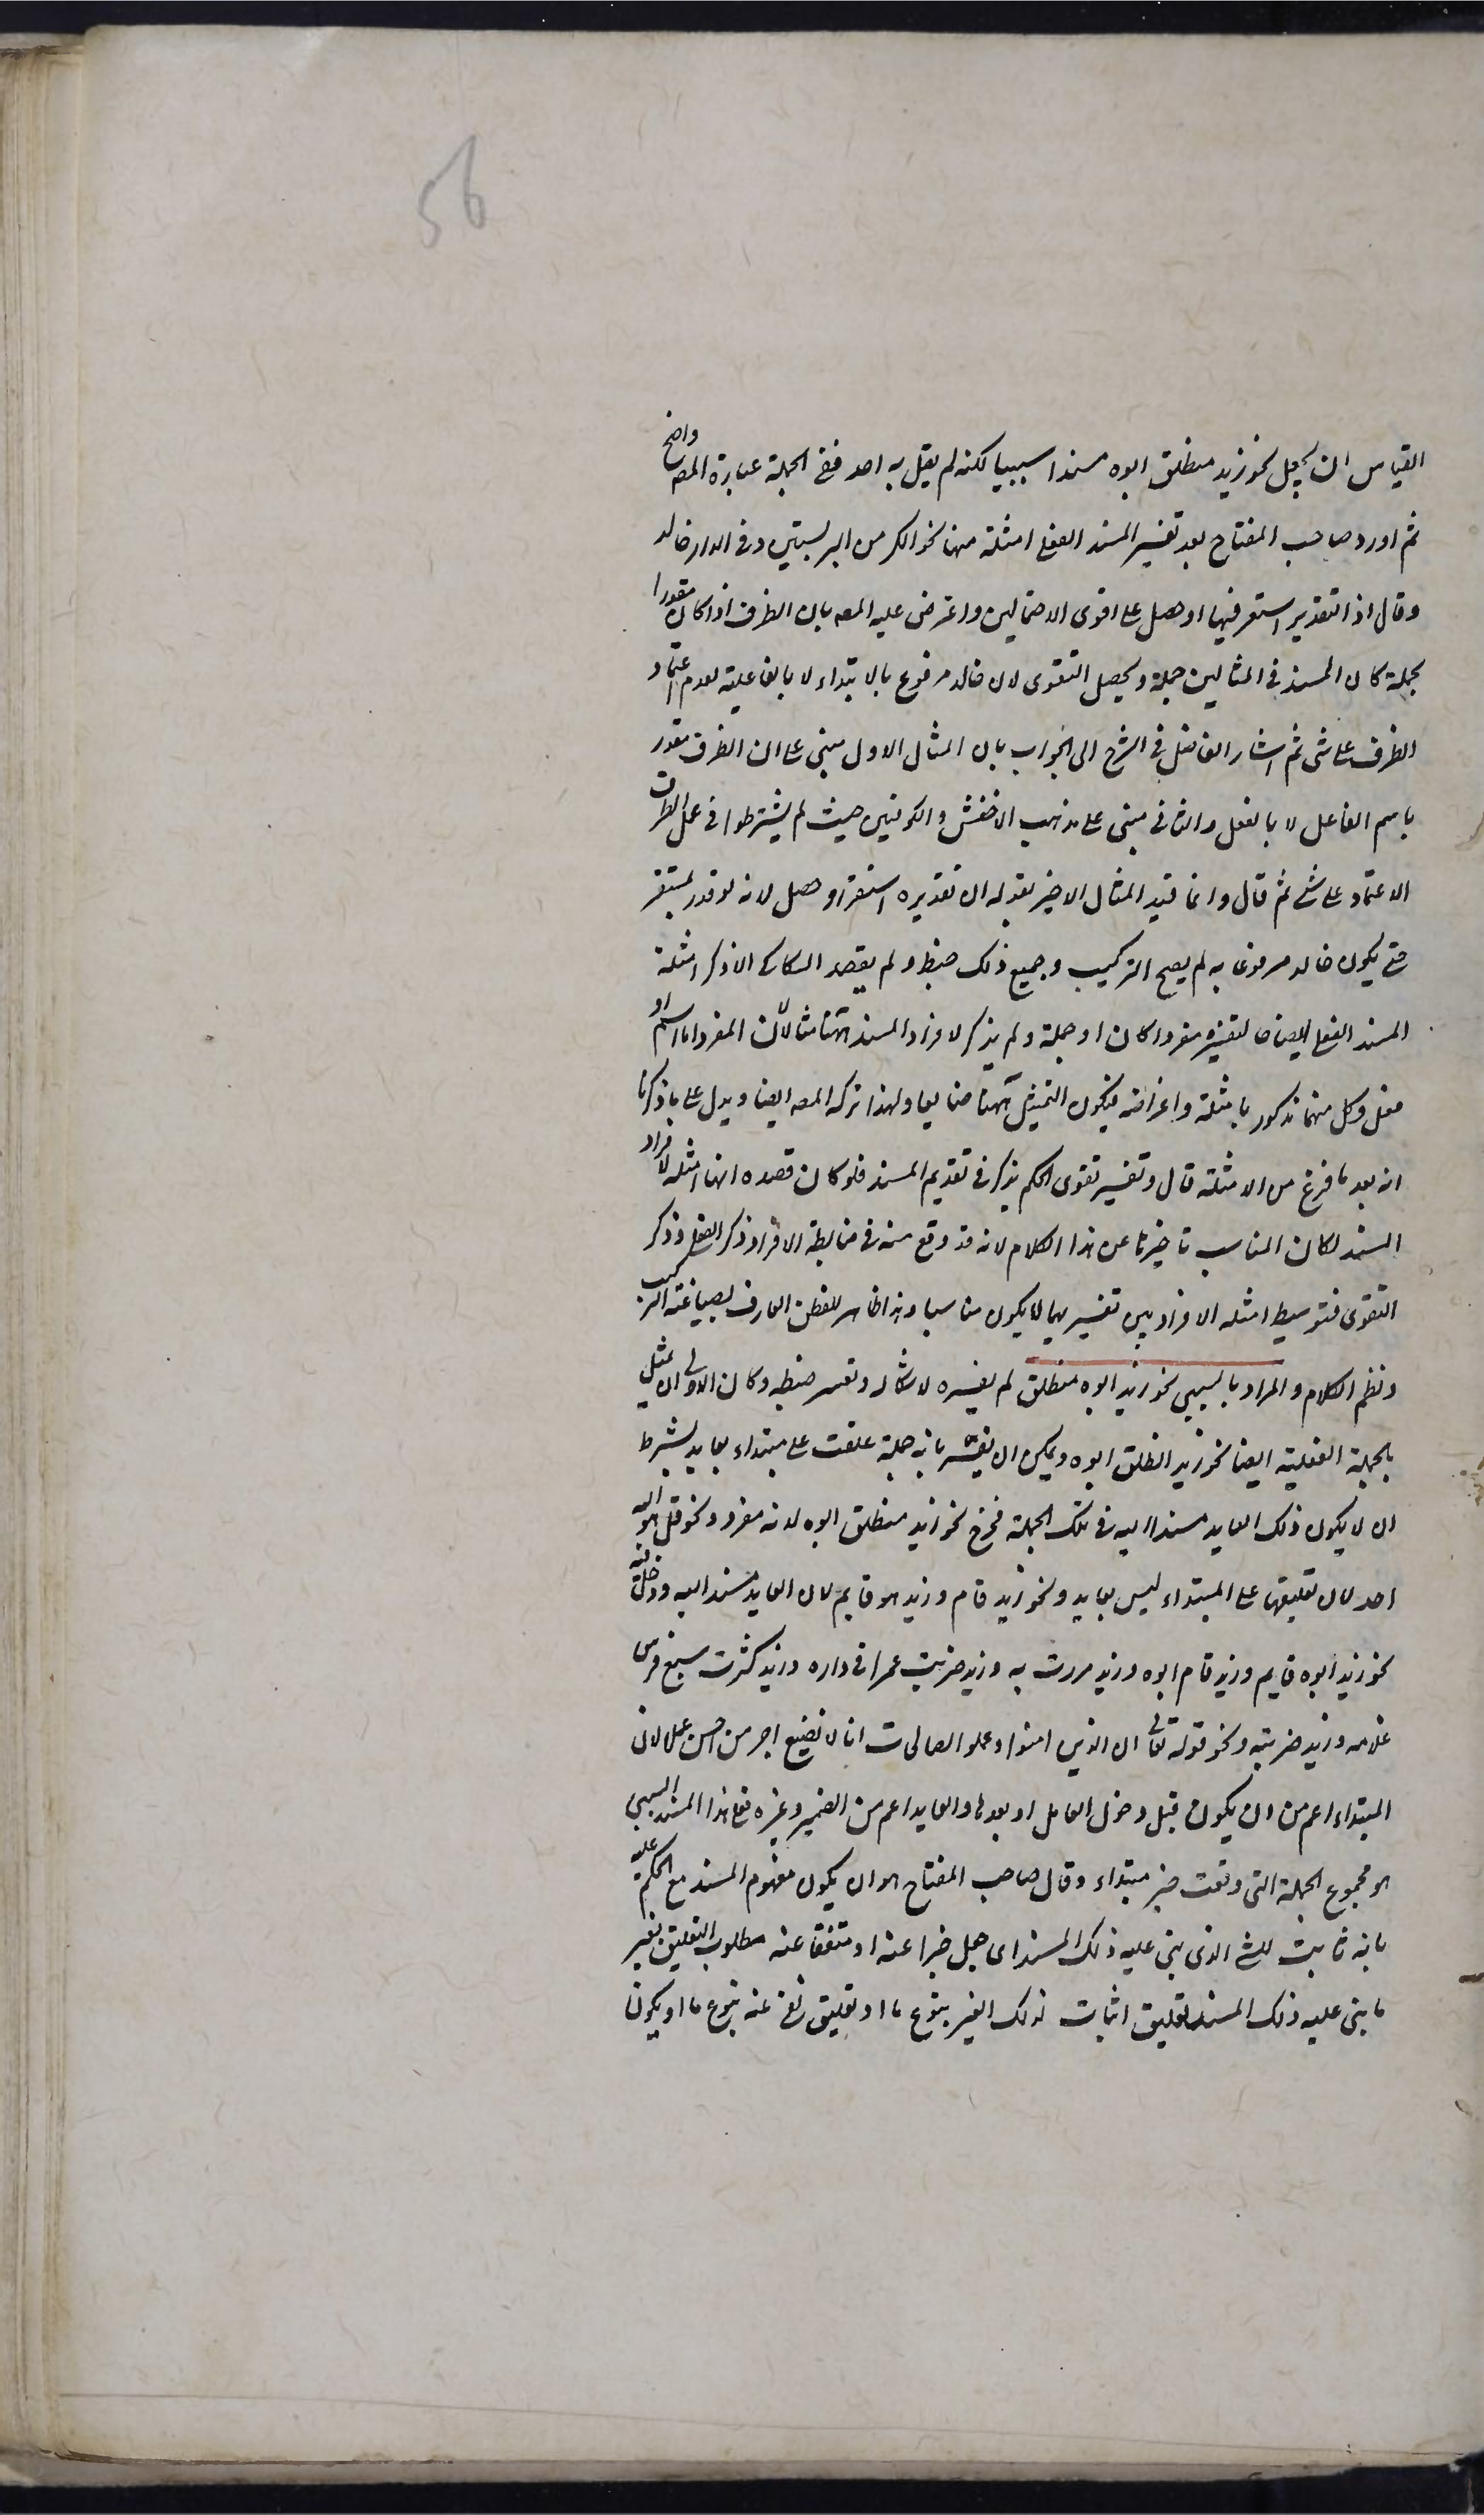 56
القياس ان يجعل نحو زيد منطلق ابوه مسندا سببيا لكنه لم يقل به احد ففى الجملة عبارة المص واضح
ثم اورد صاحب المفتاح بعد تفسير المسند الفعلى امثلة منها نحو الكر من البر بستين وفى الدار خالد
وقال اذ التقدير استقر فيها او حصل على اقوى الاحتمالين واعترض عليه المصه بان الظرف اذا كان مقدرا
بجملة كان المسند فى المثالين جملة ويحصل التقوى لان خالد مرفوع بالابتداء لا بالفاعلية لعدم اعتماد
الظرف على شى ثم اشار الفاضل فى الشرح الى الجواب بان المثال الاول مبنى على ان الظرف مقدر
باسم الفاعل لا بالفعل والثانى مبنى على مذهب الاخفش والكوفيين حيث لم يشترطوا فى عمل الظرف
الاعتماد على شئ ثم قال وانما قيد المثال الاخير بقوله ان تقديره استقر او حصل لانه لو قدر بمستقر
حتى يكون خالد مرفوعا به لم يصح التركيب وجميع ذلك خبط ولم يقصد السكاكى الا ذكر امثلة
المسند الفعلى ايضاحا لتفسيره مفردا كان او جملة ولم يذكر لافراد المسند ههنا مثالا لان المفرد اما اسم او
فعل وكل منهما مذكور بامثلة واغراضه فيكون التمثيل ههنا ضايعا ولهذا تركه المصه ايضا ويدل على ما ذكرنا
انه بعد ما فرغ من الامثلة قال وتفسير تقوى الحكم يذكر فى تقديم المسند فلو كان قصده انها امثله لافراد
المسند لكان المناسب تاخيرها عن هذا الكلام لانه قد وقع منه فى ضابطة الافراد ذكر الفعلى وذكر
التقوى فتوسيط امثله الافراد بين تفسيريهما لا يكون مناسبا وهذا ظاهر للفطن العارف بصياغة التركيب
ونظم الكلام والمراد بالسببى نحو زيد ابوه منطلق لم يفسره لاشكاله وتعسر ضبطه وكان الاولى ان يمثل
بالجملة الفعلية ايضا نحو زيد انطلق ابوه ويمكن ان يفسر بانه جملة علقت على مبتداء بعايد بشرط
ان لا يكون ذلك العايد مسندا اليه فى تلك الجملة فخرج نحو زيد منطلق ابوه لانه مفرد ونحو قل هو الله
احد لان تعليقها على المبتداء ليس بعايد ونحو زيد قام وزيد هو قايم لان العايد مسند اليه ودخل فيه
نحو زيد ابوه قايم وزيد قام ابوه وزيد مررت به وزيد ضربت عمرا فى داره وزيد كسرت سرج فرس
غلامه وزيد ضربته ونحو قوله تعالى ان الذين امنوا وعملوا الصالحات انا لا نضيع اجر من احسن عملا لان
المبتداء اعم من ان يكون قبل دخول العامل او بعده والعايد اعم من الضمير وغيره فعلى هذا المسند السببى
هو مجموع الجملة التى وقعت خبر مبتداء وقال صاحب المفتاح هو ان يكون مفهوم المسند مع الحكم عليه
بانه ثابت للشئ الذى بنى عليه ذلك المسند اى جعل خبرا عنه او منتفيا عنه مطلوب التعليق بغير
ما بنى عليه ذلك المسند تعليق اثبات لذلك الغير بنوع ما او تعليق نفى عنه بنوع ما او يكون